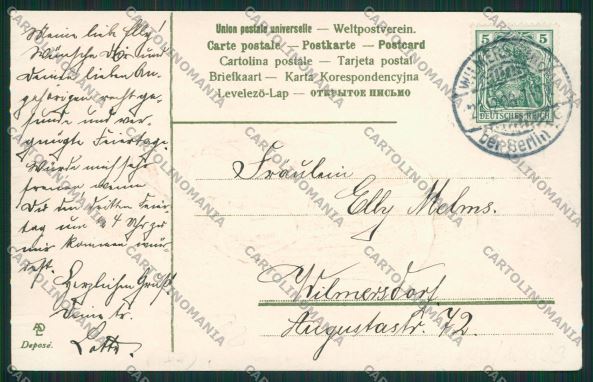 Meine liebe Elly!
Wünsche Dir und
Deinen lieben An-
gehörigen recht ge-
sunde und ver-
gnügte Feiertage.
Würde mich sehr
freuen wenn
Du den dritten Feier-
tag um 4 Uhr zu
mir kommen wür-
dest.
Herzlichen Gruß!
Deine tr.
Lotte.
Deposé.
Union postale universelle — Weltpostverein.
Carte postale — Postkarte — Postcard
Cartolina postale — Tarjeta postal
Briefkaart — Karta Korespondencyjna
Levelező-Lap — ОТКРЫТОЕ ПИСЬМО
5 5
DEUTSCHES REICH
WILMERSDORF
(bei Berlin)
Fräulein
Elly Melms.
Wilmersdorf.
Augustastr. 72.
CARTOLINOMANIA